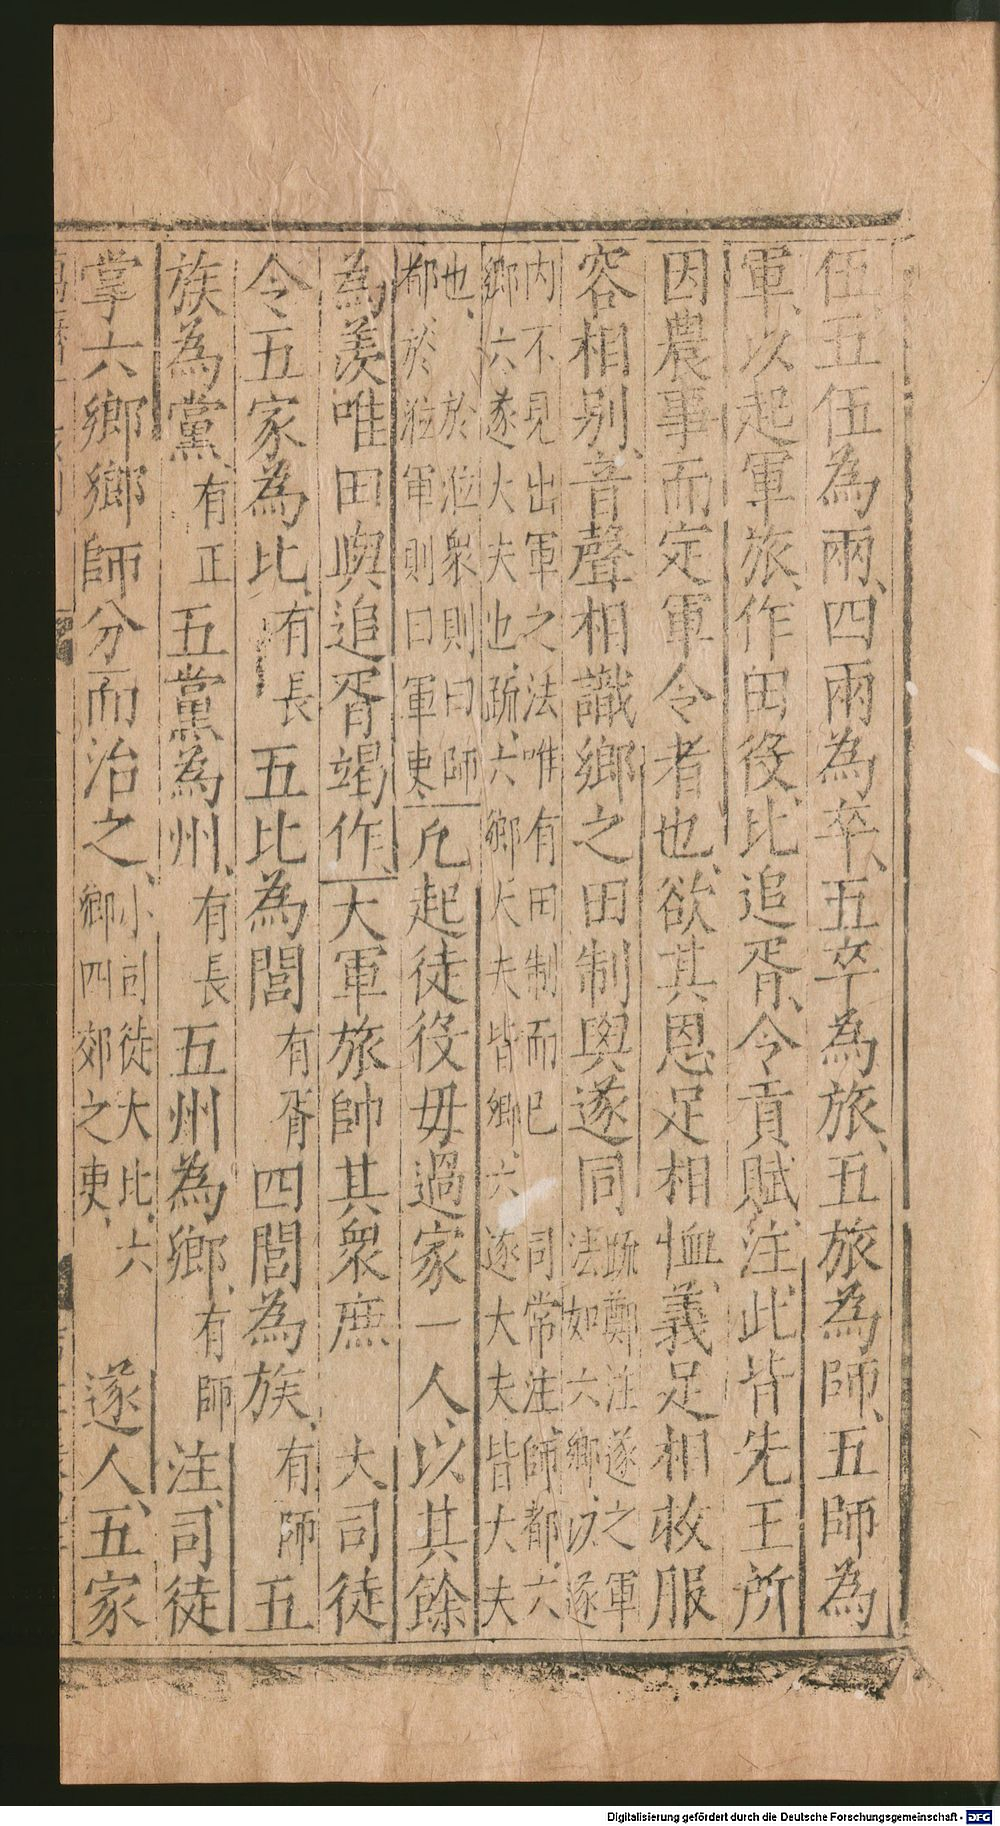 伍五伍為兩、四兩為卒、五卒為旅、五旅為師、五師為
軍、以起軍旅、作田役、比追胥、令貢賦、注、此皆先王所
因農事而定軍令者也、欲其恩足相恤、義足相救服
容相别、音聲相識鄉之田制與遂同 䟽鄭注遂之軍
法如六鄉、次遂
內不見出軍之法唯有田制而已 司常注師都、六
鄉六遂大夫也、䟽、六鄉大夫皆鄉、六遂大夫皆大夫
也、於涖衆則曰師
都、於涖軍則曰軍吏、
凡起徒役毋過家一人、以其餘
為羡唯田與追胥竭作、大軍旅帥其衆庶 大司徒
令五家為比、有長五比為閭有胥四閭為族、有師五
族為黨、有正五黨為州、有長五州為鄉、有師注、司徒
掌六鄉鄉師分而治之、小司徒大比、六
鄉四郊之吏、
遂人、五家
Digitalisierung gefördert durch die Deutsche Forschungsgemeinschaft - DFG